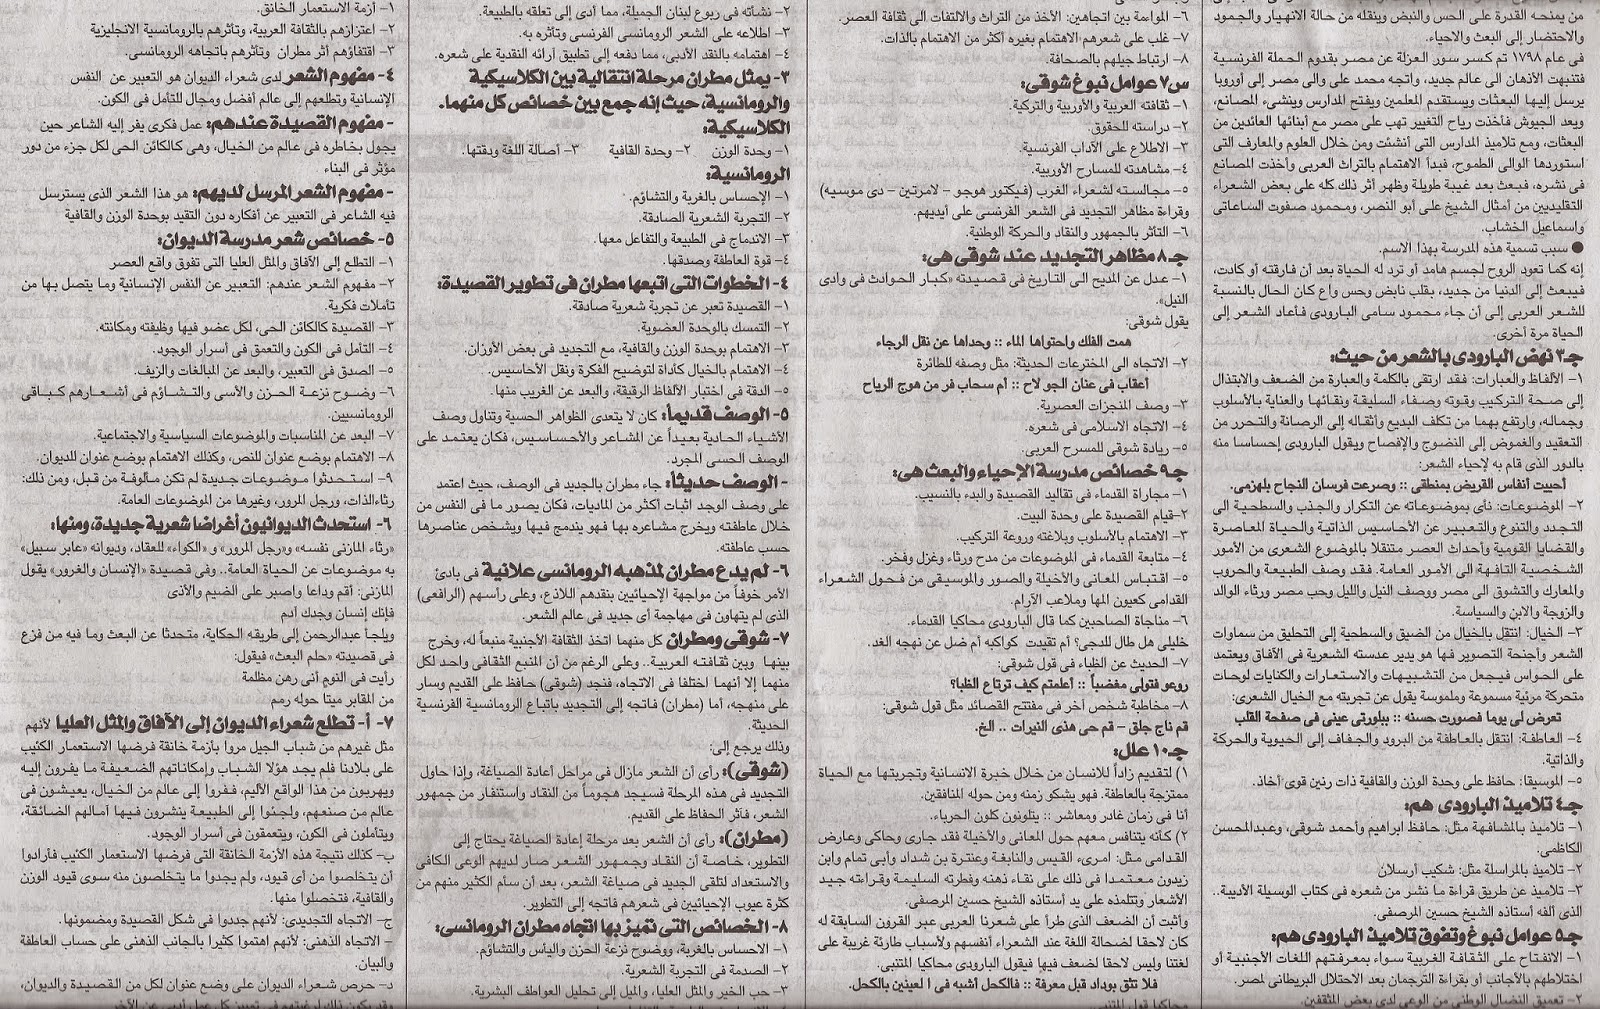 من يمنحه القدرة على الحس والنبض وينقله من حالة الانهيار والجمود
والاحتضار إلى البعث والاحياء.
فى عام ١٧٩٨ تم كسر سور العزلة عن مصر بقدوم الحملة الفرنسية
فتنبهت الأذهان الى عالم جديد، واتجه محمد على والى مصر إلى أوروبا
يرسل إليها البعثات ويستقدم المعلمين ويفتح المدارس وينشىء المصانع،
ويعد الجيوش فأخذت رياح التغيير تهب على مصر مع أبنائها العائدين من
البعثات، ومع تلاميذ المدارس التى أنشئت ومن خلال العلوم والمعارف التى
استوردها الوالى الطموح، فبدأ الاهتمام بالتراث العربى وأخذت المصانع
فى نشره، فبعث بعد غيبة طويلة وظهر أثر ذلك كله على بعض الشعراء
التقليديين من أمثال الشيخ على أبو النصر، ومحمود صفوت الساعاتى
واسماعيل الخشاب.
● سبب تسمية هذه المدرسة بهذا الاسم.
إنه كما تعود الروح لجسم هامد أو ترد له الحياة بعد أن فارقته أو كادت،
فيبعث إلى الدنيا من جديد، بقلب نابض وحس واع كان الحال بالنسبة
للشعر العربى إلى أن جاء محمود سامى البارودى فأعاد الشعر إلى
الحياة مرة أخرى.
جـ٣ نهض البارودى بالشعر من حيث:
١- الألفاظ والعبارات: فقد ارتقى بالكلمة والعبارة من الضعف والابتذال
إلى صحة التركيب وقوته وصفاء السليقة ونقائها والعناية بالأسلوب
وجماله، وارتفع بهما من تكلف البديع وأثقاله إلى الرصانة والتحرر من
التعقيد والغموض إلى النضوج والإفصاح ويقول البارودى إحساسا منه
بالدور الذى قام به لإحياء الشعر:
أحييت أنفاس القريض بمنطقى :: وصرعت فرسان النجاح بلهزمى.
٢- الموضوعات: نأى بموضوعاته عن التكرار والجذب والسطحية الى
التجدد والتنوع والتعبير عن الأحاسيس الذاتية والحياة المعاصرة
والقضايا القومية وأحداث العصر متنقلا بالموضوع الشعرى من الأمور
الشخصية التافهة الى الأمور العامة. فقد وصف الطبيعة والحروب
والمعارك والتشوق الى مصر ووصف النيل والليل وحب مصر ورثاء الوالد
والزوجة والابن والسياسة.
٣- الخيال: انتقل بالخيال من الضيق والسطحية إلى التحليق من سماوات
الشعر وأجنحة التصوير فها هو يدير عدسته الشعرية فى الآفاق ويعتمد
على الحواس فيجعل من التشبيهات والاستعارات والكنايات لوحات
متحركة مرئية مسموعة وملموسة يقول عن تجربته مع الخيال الشعرى:
تعرض لى يوما فصورت حسنه :: ببلورتى عينى فى صفحة القلب
٤- العاطفة: انتقل بالعاطفة من البرود والجفاف إلى الحيوية والحركة
والذاتية.
٥- الموسيقا: حافظ على وحدة الوزن والقافية ذات رنين قوى أخاذ.
جـ٤ تلاميذ البارودى هم:
١- تلاميذ بالمشافهة مثل: حافظ ابراهيم وأحمد شوقى، وعبدالمحسن
الكاظمى.
٢- تلاميذ بالمراسلة مثل: شكيب أرسلان
٣- تلاميذ عن طريق قراءة ما نشر من شعره فى كتاب الوسيلة الأدبية..
الذى ألفه أستاذه الشيخ حسين المرصفى.
جـ٥ عوامل نبوغ وتفوق تلاميذ البارودى هم:
١- الانفتاح على الثقافة الغربية سواء بمعرفتهم اللغات الأجنبية أو
اختلاطهم بالأجانب أو بقراءة الترجمان بعد الاحتلال البريطانى لمصر.
٢- تعميق النضال الوطنى من الوعى لدى بعض المثقفين.
٦- المواءمة بين اتجاهين: الأخذ من التراث والالتفات الى ثقافة العصر.
٧- غلب على شعرهم الاهتمام بغيره أكثر من الاهتمام بالذات.
٨- ارتباط جيلهم بالصحافة.
س٧ عوامل نبوغ شوقى:
١- ثقافته العربية والأوربية والتركية.
٢- دراسته للحقوق.
٣- الاطلاع على الآداب الفرنسية.
٤- مشاهدته للمسارح الأوربية.
٥- مجالسته لشعراء الغرب (فيكتور هوجو - لامرتين - دى موسيه)
وقراءة مظاهر التجديد فى الشعر الفرنسى على أيديهم.
٦- التأثر بالجمهور والنقاد والحركة الوطنية.
جـ٨ مظاهر التجديد عند شوقى هى:
١- عدل عن المديح الى التاريخ فى قصيدته «كبار الحوادث فى وادى
النيل».
يقول شوقى:
همت الفلك واحتواها الماء :: وحداها عن نقل الرجاء
٢- الاتجاه الى المخترعات الحديثة: مثل وصفه للطائرة
أعقاب فى عنان الجو لاح :: أم سحاب فر من هوج الرياح
٣- وصف المنجزات العصرية.
٤- الاتجاه الاسلامى فى شعره.
٥- ريادة شوقى للمسرح العربى.
جـ٩ خصائص مدرسة الإحياء والبعث هى:
١- مجاراة القدماء فى تقاليد القصيدة والبدء بالنسيب.
٢- قيام القصيدة على وحدة البيت.
٣- الاهتمام بالأسلوب وبلاغته وروعة التركيب.
٤- متابعة القدماء فى الموضوعات من مدح ورثاء وغزل وفخر.
٥- اقتباس المعانى والأخيلة والصور والموسيقى من فحول الشعراء
القدامى كعيون المها وملاعب الآرام.
٦- مناجاة الصاحبين كما قال البارودى محاكيا القدماء.
خليلى هل طال للدجى؟ أم تقيدت كواكبه أم ضل عن نهجه الغد.
٧- الحديث عن الظباء فى قول شوقى:
روعو فتولى مغضباً :: أعلمتم كيف ترتاع الظبا؟
٨- مخاطبة شخص أخر فى مفتتح القصائد مثل قول شوقى:
قم ناج جلق - قم حى هذى النيرات .. الخ.
جـ١٠ علل:
١) لتقديم زاداً للانسان من خلال خبرة الانسانية وتجربتها مع الحياة
ممتزجة بالعاطفة. فهو يشكو زمنه ومن حوله المنافقين.
أنا فى زمان غادر ومعاشر :: يتلونون كلون الحرباء.
٢) كأنه يتنافس معهم حول المعانى والأخيلة فقد جارى وحاكى وعارض
القدامى مثل: امرىء القيس والنابغة وعنترة بن شداد وأبى تمام وابن
زيدون معتمدا فى ذلك على نقاء ذهنه وفطرته السليمة وقراءته جيد
الأشعار وبتلمذه على يد أستاذه الشيخ حسين المرصفى.
وأثبت أن الضعف الذى طرأ على شعرنا العربى عبر القرون السابقة له
كان لاحقا لضحالة اللغة عند الشعراء أنفسهم ولأسباب طارئة غريبة على
لغتنا وليس لاحقا لضعف فيها فيقول البارودى محاكيا المتنبى.
فلا تثق بوداد قبل معرفة :: فالكحل أشبه فى ا لعينين بالكحل.
محاكيا قول المتنبى
٢- نشأته فى ربوع لبنان الجميلة، مما أدى إلى تعلقه بالطبيعة.
٣- اطلاعه على الشعر الرومانسى الفرنسى وتأثره به.
٤- اهتمامه بالنقد الأدبى، مما دفعه إلى تطبيق أرائه النقدية على شعره.
٣- يمثل مطران مرحلة إنتقالية بين الكلاسيكية
والرومانسية، حيث إنه جمع بين خصائص كل منهما.
الكلاسيكية:
١- وحدة الوزن ٢- وحدة القافية ٣- أصالة اللغة ودقتها.
الرومانسية:
١- الإحساس بالغربة والتشاؤم.
٢- التجربة الشعرية الصادقة.
٣- الاندماج فى الطبيعة والتفاعل معها.
٤- قوة العاطفة وصدقها.
٤- الخطوات التى اتبعها مطران فى تطوير القصيدة:
١- القصيدة تعبر عن تجربة شعرية صادقة.
٢- التمسك بالوحدة العضوية.
٣- الاهتمام بوحدة الوزن والقافية، مع التجديد فى بعض الأوزان.
٤- الاهتمام بالخيال كأداة لتوضيح الفكرة ونقل الأحاسيس.
٥- الدقة فى اختيار الألفاظ الرقيقة، والبعد عن الغريب منها.
٥- الوصف قديماً: كان لا يتعدى الظواهر الحسية وتناول وصف
الأشياء الحادية بعيداً عن المشاعر والأحساسيس، فكان يعتمد على
الوصف الحسى المجرد.
- الوصف حديثاً: جاء مطران بالجديد فى الوصف، حيث اعتمد
على وصف الوجد اثبات أكثر من الماديات، فكان يصور ما فى النفس من
خلال عاطفته ويخرج مشاعره بها فهو يندمج فيها ويشخص عناصرها
حسب عاطفته.
٦- لم يدع مطران لمذهبه الرومانسى علانية فى بادئ
الأمر خوفاً من مواجهة الإحيائيين بنقدهم اللاذع، وعلى رأسهم (الرافعى)
الذى لم يتهاون فى مهاجمة أى جديد فى عالم الشعر.
٧- شوقى ومطران كل منهما اتخذ الثقافة الأجنبية منبعاً له، وخرج
بينها وبين ثقافته العربية.. وعلى الرغم من أن المنبع الثقافى واحد لكل
منهما إلا أنهما اختلفا فى الاتجاه، فنجد (شوقى) حافظ على القديم وسار
على منهجه، أما (مطران) فاتجه إلى التجديد بإتباع الرومانسية الفرنسية
الحديثة.
وذلك يرجع إلى:
(شوقى): رأى أن الشعر مازال فى مراحل أعادة الصياغة، وإذا حاول
التجديد فى هذه المرحلة فسيجد هجوماً من النقاد واستنفار من جمهور
الشعر، فأثر الحفاظ على القديم.
(مطران): رأى أن الشعر بعد مرحلة إعادة الصياغة يحتاج إلى
التطوير، خاصة أن النقاد وجمهور الشعر صار لديهم الوعى الكافى
والاستعداد لتلقى الجديد فى صياغة الشعر، بعد أن سأم الكثير منهم من
كثرة عيوب الإحيائيين فى شعرهم فاتجه إلى التطوير.
٨- الخصائص التى تميز بها اتجاه مطران الرومانسى:
١- الاحساس بالغربة، ووضوح نزعة الحزن واليأس والتشاؤم.
٢- الصدمة فى التجربة الشعرية.
٣- حب الخير والمثل العليا، والميل إلى تحليل العواطف البشرية.
١- أزمة الاستعمار الخانق.
٢- اعتزازهم بالثقافة العربية، وتأثرهم بالرومانسية الانجليزية
٣- اقتفاؤهم أثر مطران وتاثرهم باتجاهه الرومانسى.
٤- مفهوم الشعر لدى شعراء الديوان هو التعبير عن النفس
الإنسانية وتطلعهم إلى عالم أفضل ومجال للتأمل فى الكون.
- مفهوم القصيدة عندهم: عمل فكرى يفر إليه الشاعر حين
يجول بخاطره فى عالم من الخيال، وهى كالكائن الحى لكل جزء من دور
مؤثر فى البناء
- مفهوم الشعر المرسل لديهم: هو هذا الشعر الذى يسترسل
فيه الشاعر فى التعبير عن أفكاره دون التقيد بوحدة الوزن والقافية
٥- خصائص شعر مدرسة الديوان:
١- التطلع إلى الآفاق والمثل العليا التى تفوق واقع العصر
٢- مفهوم الشعر عندهم: التعبير عن النفس الإنسانية وما يتصل بها من
تأملات فكرية.
٣- القصيدة كالكائن الحى، لكل عضو فيها وظيفته ومكانته.
٤- التأمل فى الكون والتعمق فى أسرار الوجود.
٥- الصدق فى التعبير، والبعد عن المبالغات والزيف.
٦- وضوح نزعة الحزن والأسى والتشاؤم فى أشعارهم كباقى
الرومانسيين.
٧- البعد عن المناسبات والموضوعات السياسية والاجتماعية.
٨- الاهتمام بوضع عنوان للنص، وكذلك الاهتمام بوضع عنوان للديوان.
٩- استحدثوا موضوعات جديدة لم تكن مألوفة من قبل، ومن ذلك:
رثاءالذات، ورجل المرور، وغيرها من الموضوعات العامة.
٦- استحدث الديوانيون أغراضا شعرية جديدة، ومنها:
«رثاء المازنى نفسه» و«رجل المرور» و «الكواء» للعقاد، وديوانه «عابر سبيل»
به موضوعات عن الحياة العامة.. وفى قصيدة «الإنسان والغرور» يقول
المازنى: أقم وداعا واصبر على الضيم والأذى
فإنك إنسان وجدك أدم
ويلجأ عبدالرحمن إلى طريقه الحكاية، متحدثا عن البعث وما فيه من فزع
فى قصيدته «حلم البعث» فيقول:
رأيت فى النوم أنى رهن مظلمة
من المقابر ميتا حوله رمم
٧- أ- تطلع شعراء الديوان إلى الآفاق والمثل العليا لأنهم
مثل غيرهم من شباب الجيل مروا بأزمة خانقة فرضها الاستعمار الكئيب
على بلادنا فلم يجد هؤلا الشباب وإمكاناتهم الضعيفة ما يفرون إليه
ويهربون من هذا الواقع الأليم، ففروا إلى عالم من الخيال، يعيشون فى
عالم من صنعهم، ولجئوا إلى الطبيعة ينشرون فيها أمالهم الضائقة،
ويتأملون فى الكون، ويتعمقون فى أسرار الوجود.
ب- كذلك نتيجة هذه الأزمة الخانقة التى فرضها الاستعمار الكئيب فأرادوا
أن يتخلصوا من أى قيود، ولم يجدوا ما يتخلصون منه سوى قيود الوزن
والقافية، فتخصلوا منها.
ج- الاتجاه التجديدى: لأنهم جددوا فى شكل القصيدة ومضمونها.
- الاتجاه الذهنى: لأنهم اهتموا كثيرا بالجانب الذهنى على حساب العاطفة
والبيان.
د- حرص شعراء الديوان على وضع عنوان لكل من القصيدة والديوان،